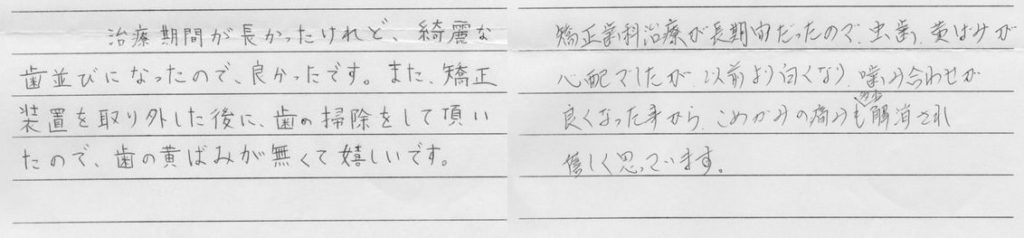 治療期間が長かったけれど、綺麗な
歯並びになったので、良かったです。また、矯正
装置を取り外した後に、歯の掃除をして頂い
たので、歯の黄ばみが無くて嬉しいです。
矯正歯科治療が長期間だったので、虫歯、黄ばみが
心配でしたが、以前より白くなり、噛み合わせが
良くなった事から、こめかみの痛みも解消され
嬉しく思っています。